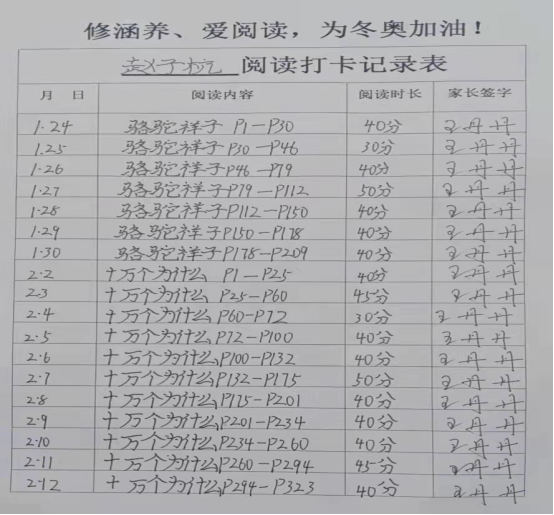 修涵养、爱阅读，为冬奥加油！
赵子杭 阅读打卡记录表
月 日 阅读内容 阅读时长 家长签字
1.24 骆驼祥子 P1-P30 40分 王丹丹
1.25 骆驼祥子 P30-P46 30分 王丹丹
1.26 骆驼祥子 P46-P79 40分 王丹丹
1.27 骆驼祥子P79-P112 50分 王丹丹
1.28 骆驼祥子P112-P150 40分 王丹丹
1.29 骆驼祥子P150-P178 40分 王丹丹
1.30 骆驼祥子P178-P209 40分 王丹丹
2.2 十万个为什么 P1-P25 40分 王丹丹
2.3 十万个为什么 P25-P60 45分 王丹丹
2.4 十万个为什么 P60-P72 30分 王丹丹
2.5 十万个为什么P72-P100 40分 王丹丹
2.6 十万个为什么P100-P132 40分 王丹丹
2.7 十万个为什么P132-P175 50分 王丹丹
2.8 十万个为什么P175-P201 40分 王丹丹
2.9 十万个为什么P201-P234 40分 王丹丹
2.10 十万个为什么P234-P260 40分 王丹丹
2.11 十万个为什么P260-P294 45分 王丹丹
2.12 十万个为什么P294-P323 40分 王丹丹